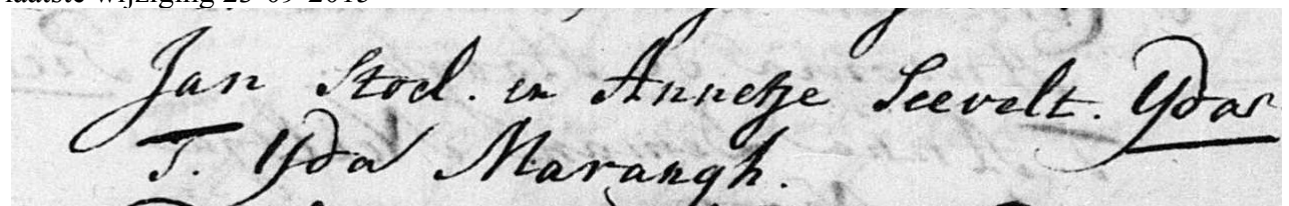 laatste wijziging 23-09-2015
Jan Stoel. en Annetje Seevelt. Yda
T. Yda Marangh.